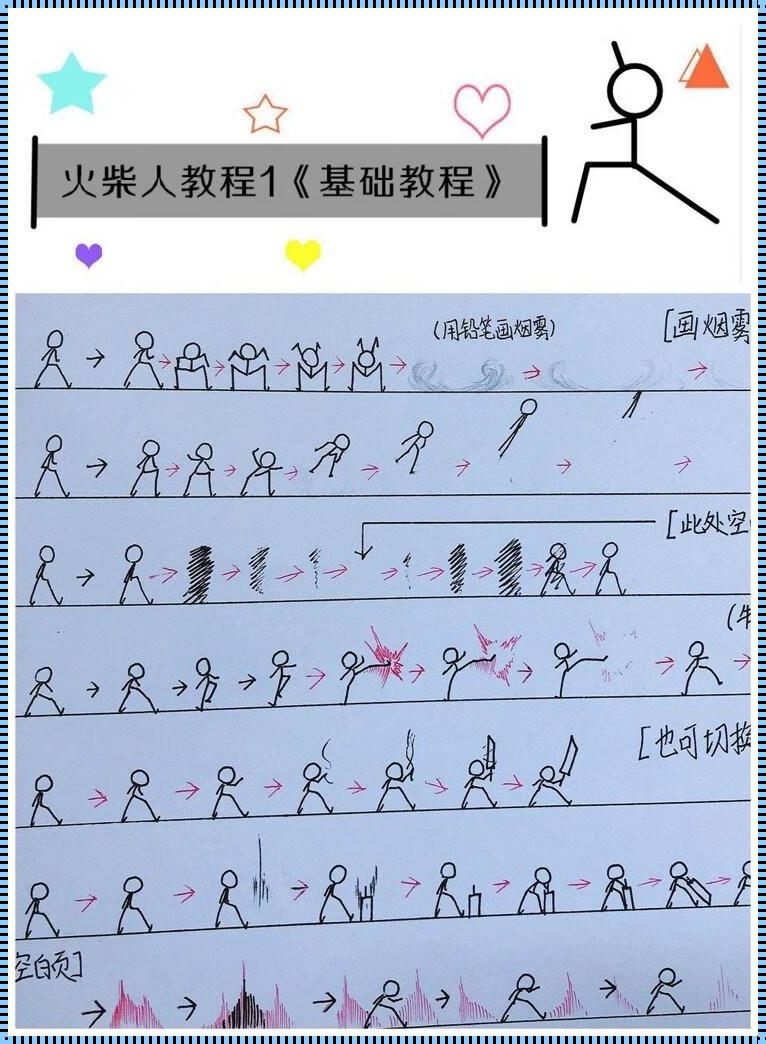 火柴人教程1《基础教程》
(用铅笔画烟雾)
[画烟雾
[此处空
(牛
[也可切换
空白页]